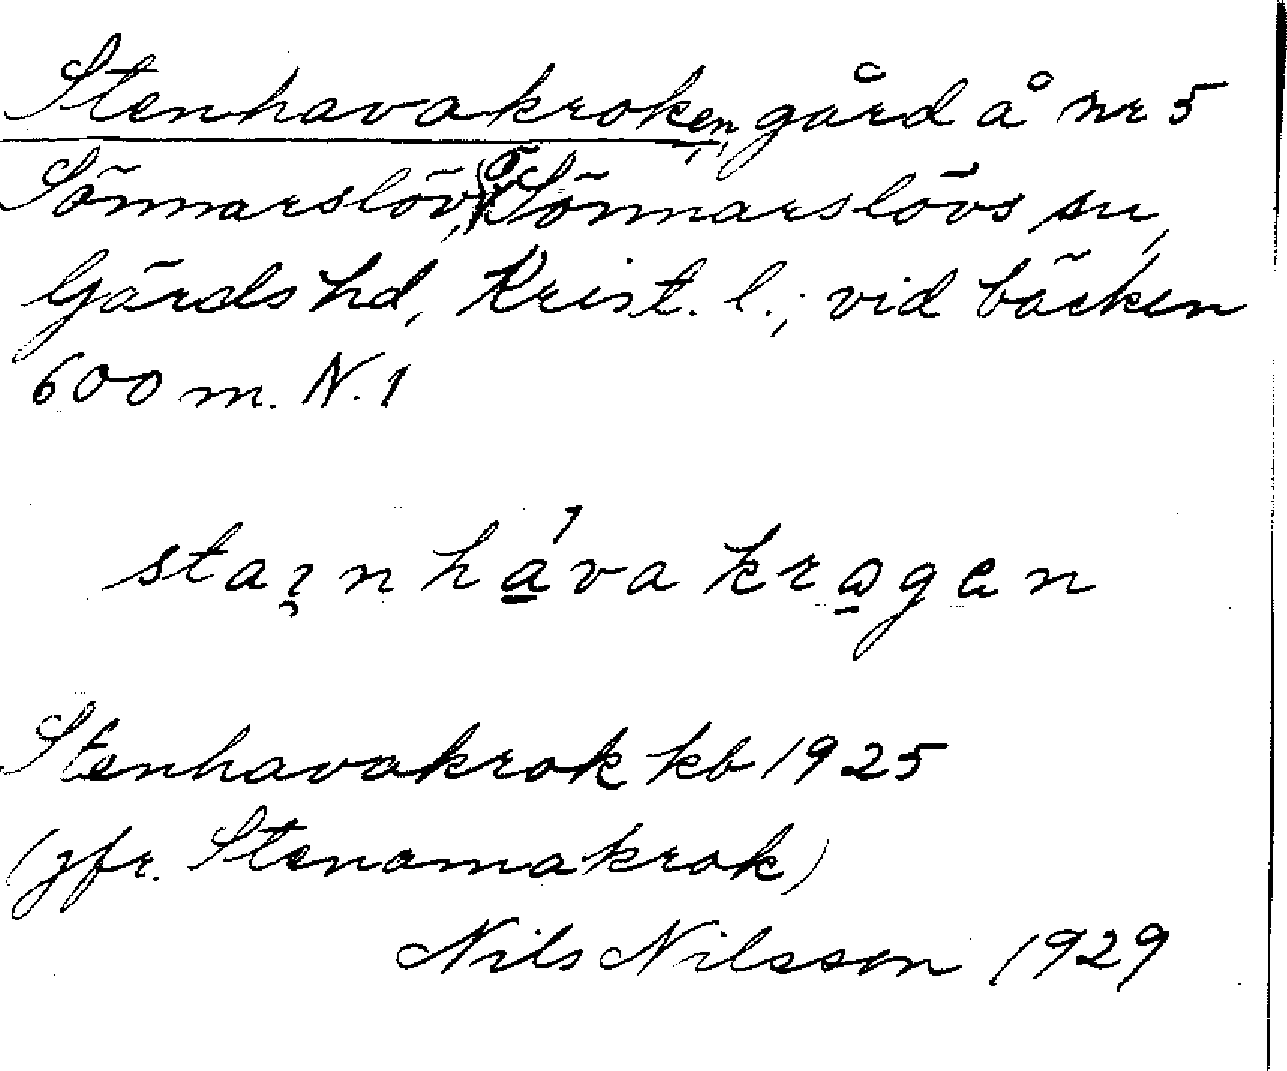 Stenhavakroken, gård å nr 5
Sönnarslöv, Sönnarslövs sn,
Gärds hd, Krist. l.; vid bäcken
600 m. N. 1
sta̱ı̨n há̱va kro̱gen
Stenhavakrok kb 1925
(jfr. Stenamakrok)
Nils Nilsson 1929